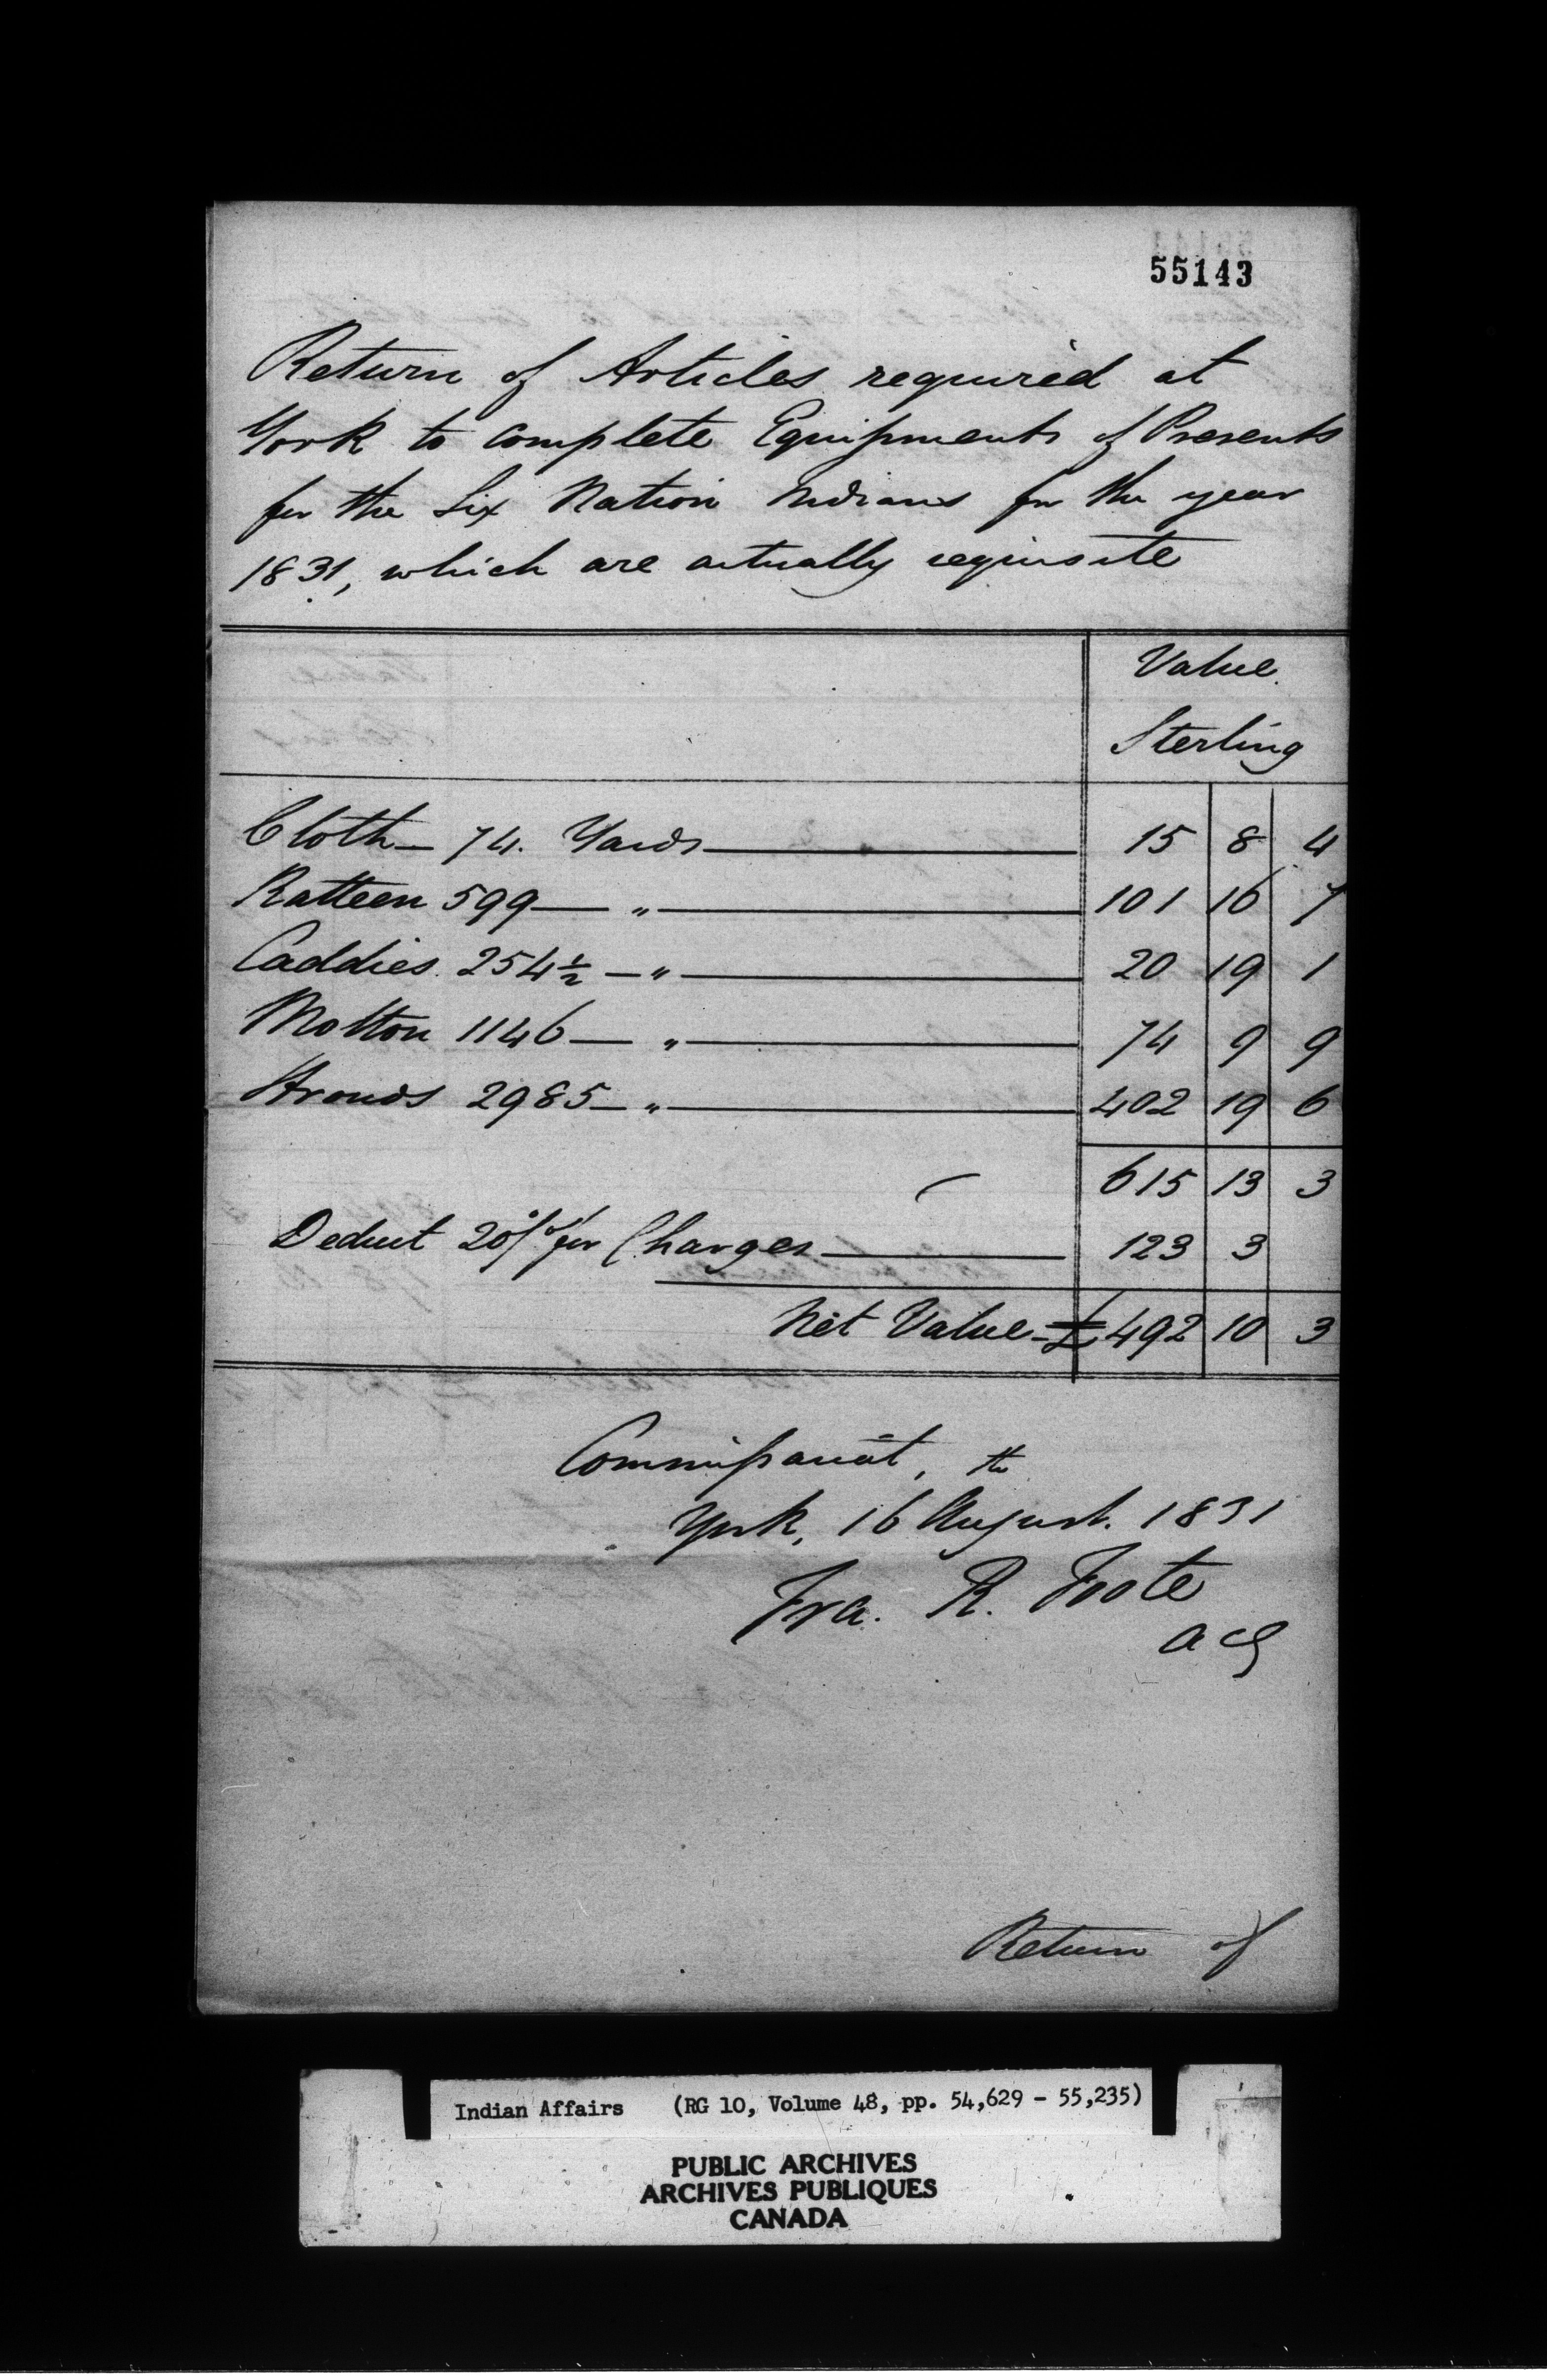 55143
Return of Articles required at
York to complete Equipments of Presents
for the Six Nation Indians for the year
1831, which are actually requisite
Value
Sterling
Cloth — 74 Yards — 15 8 4
Ratteen 599 — " — 101 16 7
Caddies 254½ — " — 20 19 1
Molton 1146 — " — 74 9 9
Strouds 2985 — " — 402 19 6
615 13 3
Deduct 20 % for Charges — 123 3
Net Value - £ 492 10 3
Commissariat,
York, 16th August. 1831
Fra. R. Foote
ACG
Return of
Indian Affairs (RG 10, Volume 48, pp. 54,629 - 55,235)
PUBLIC ARCHIVES
ARCHIVES PUBLIQUES
CANADA